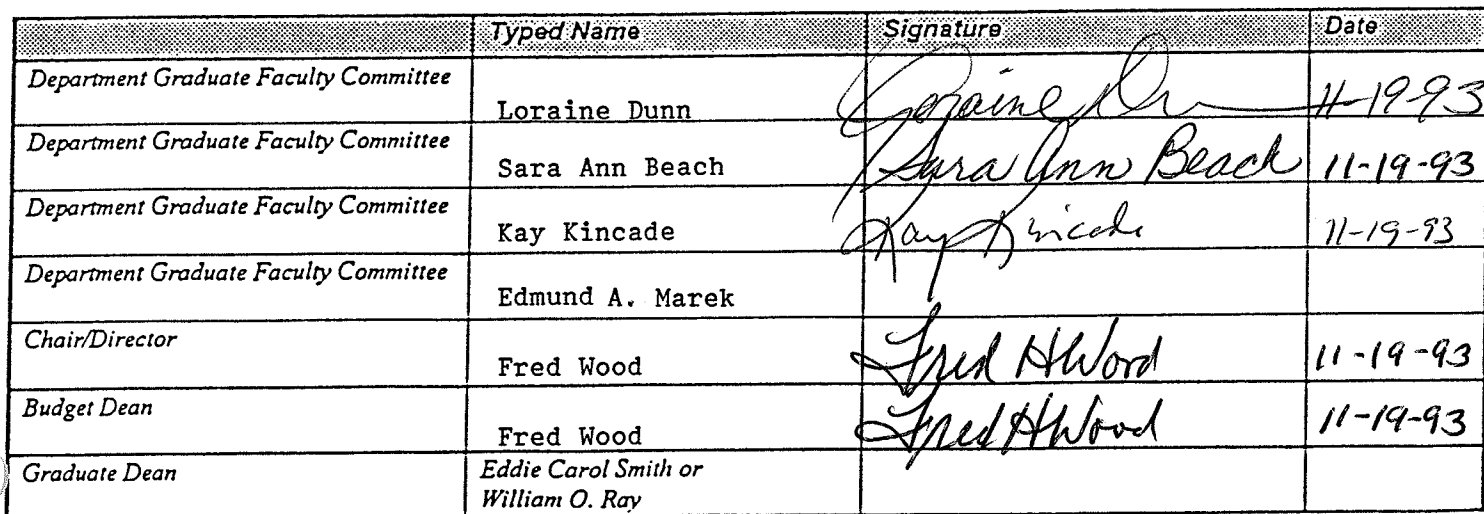 Typed Name Signature Date
Department Graduate Faculty Committee Loraine Dunn Loraine Dunn 11-19-93
Department Graduate Faculty Committee Sara Ann Beach Sara Ann Beach 11-19-93
Department Graduate Faculty Committee Kay Kincade Kay Kincade 11-19-93
Department Graduate Faculty Committee Edmund A. Marek
Chair/Director Fred Wood Fred H Wood 11-19-93
Budget Dean Fred Wood Fred H Wood 11-19-93
Graduate Dean Eddie Carol Smith or
William O. Ray